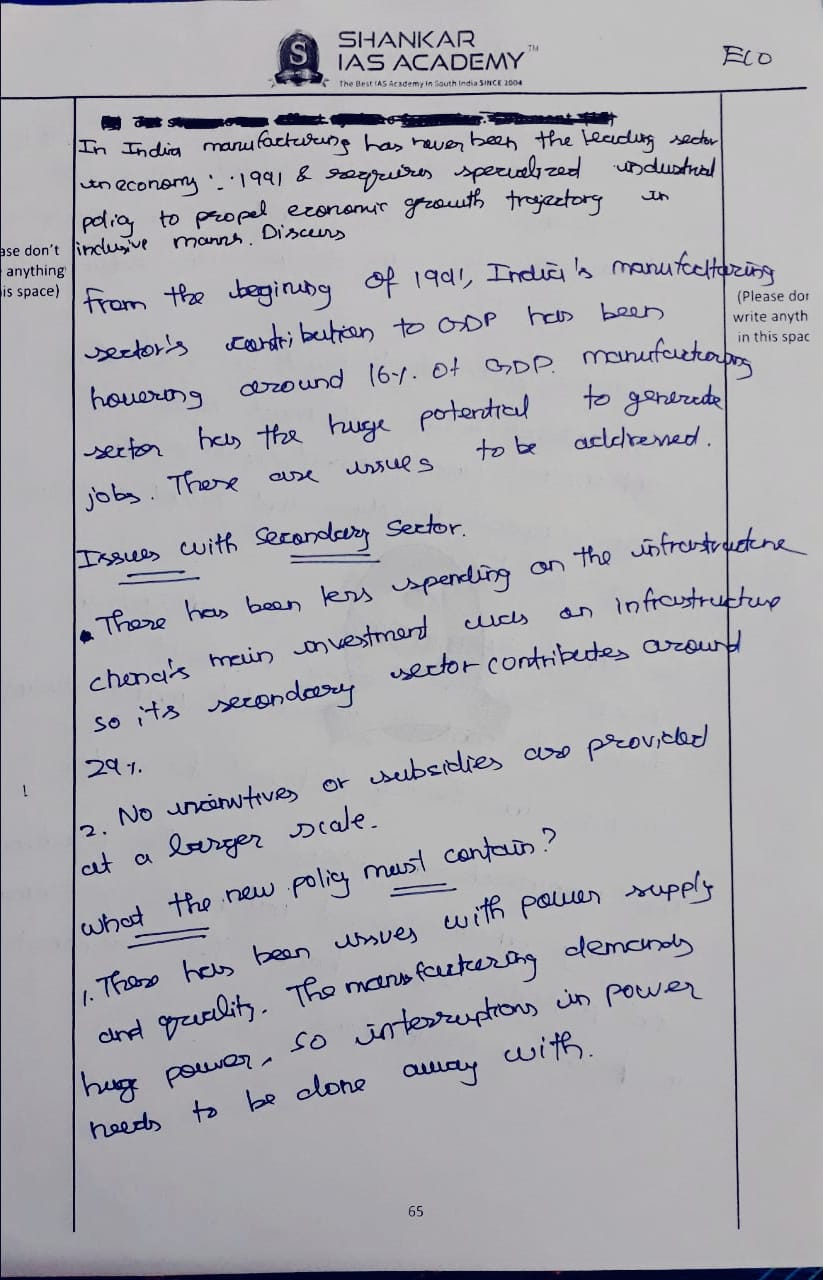 SHANKAR
IAS ACADEMY TM
The Best IAS Academy in South India SINCE 2004
ECO
In India manufacturing has never been the leading sector
in economy 1991 & requires specialized industrial
policy to propel economic growth trajectory in
inclusive mann. Discuss
ase don't
anything
is space)
(Please don
write anyth
in this spac
From the begining of 1991, India's manufacturing
sector's contribution to GDP has been
hovering around 16%. of GDP. manufacturing
sector has the huge potential to generate
jobs. There are issues to be addressed.
Issues with Secondary Sector.
• There has been less spending on the infrastructure
china's main investment was on infrastructure
so its secondary sector contributes around
29%.
2. No incentives or subsidies are provided
at a larger scale.
what the new policy must contain?
1. There has been issues with power supply
and quality. The manufacturing demands
huge power, so interruptions in power
needs to be done away with.
!
65